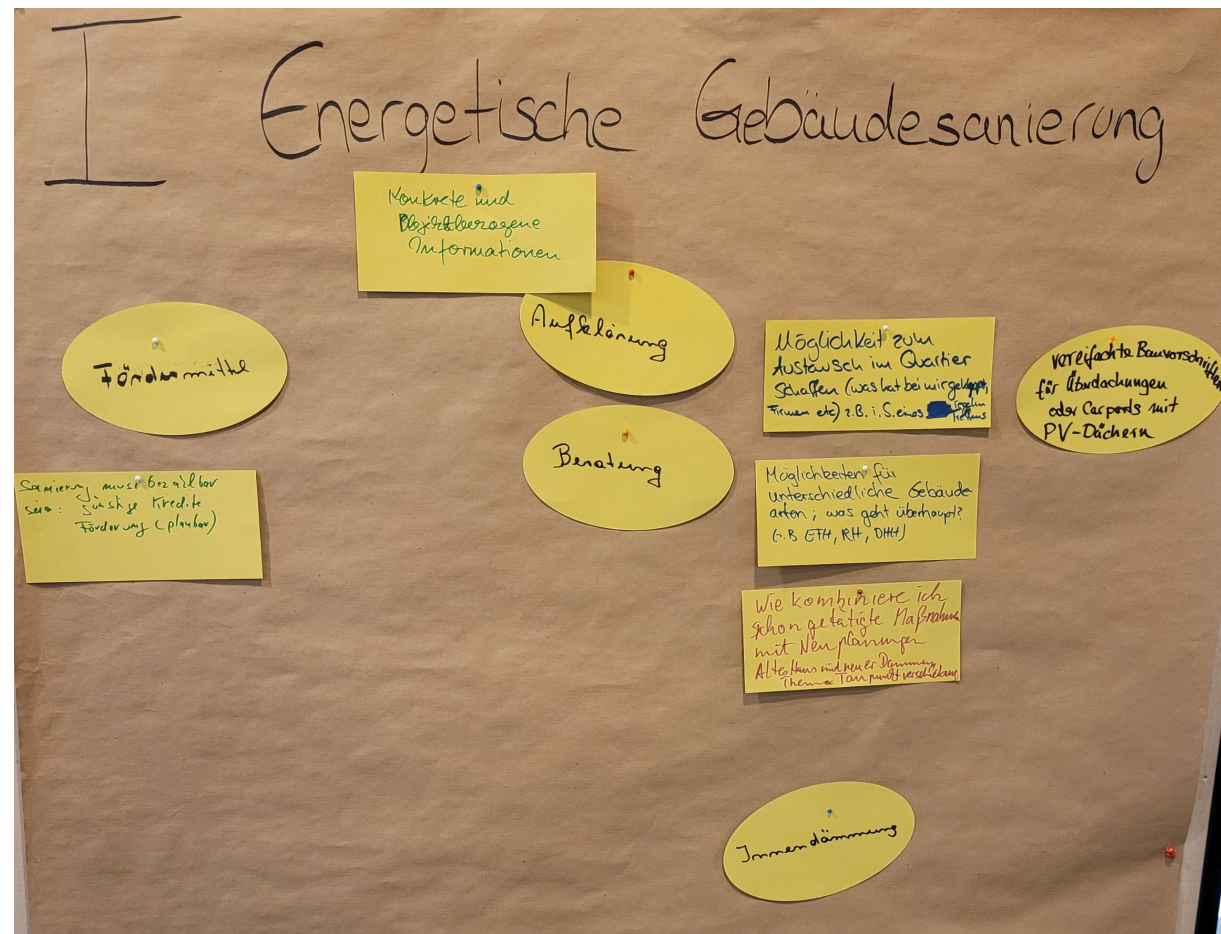 I Energetische Gebäudesanierung
Konkrete und
Objektbezogene
Informationen
Aufklärung
Fördermittel
Möglichkeit zum
Austausch im Quartier
Schaffen (was hat bei wir geklappt,
Firmen etc) z.B. i. S. eines
vereifachte Bauvorschriften
für Überdachungen
oder Carports mit
PV-Dächern
Beratung
Sanierung muss bezahlbar
sein: günstige Kredite
Förderung (planbar)
Möglichkeiten für
unterschiedliche Gebäude
arten; was geht überhaupt?
(z.B EFH, RH, DHH)
Wie kombiniere ich
schon getätigte Maßnahmen
mit Neuplanungen
Altes Haus mit neuer Dämmung
Thema Taupunktverschiebung
Innendämmung